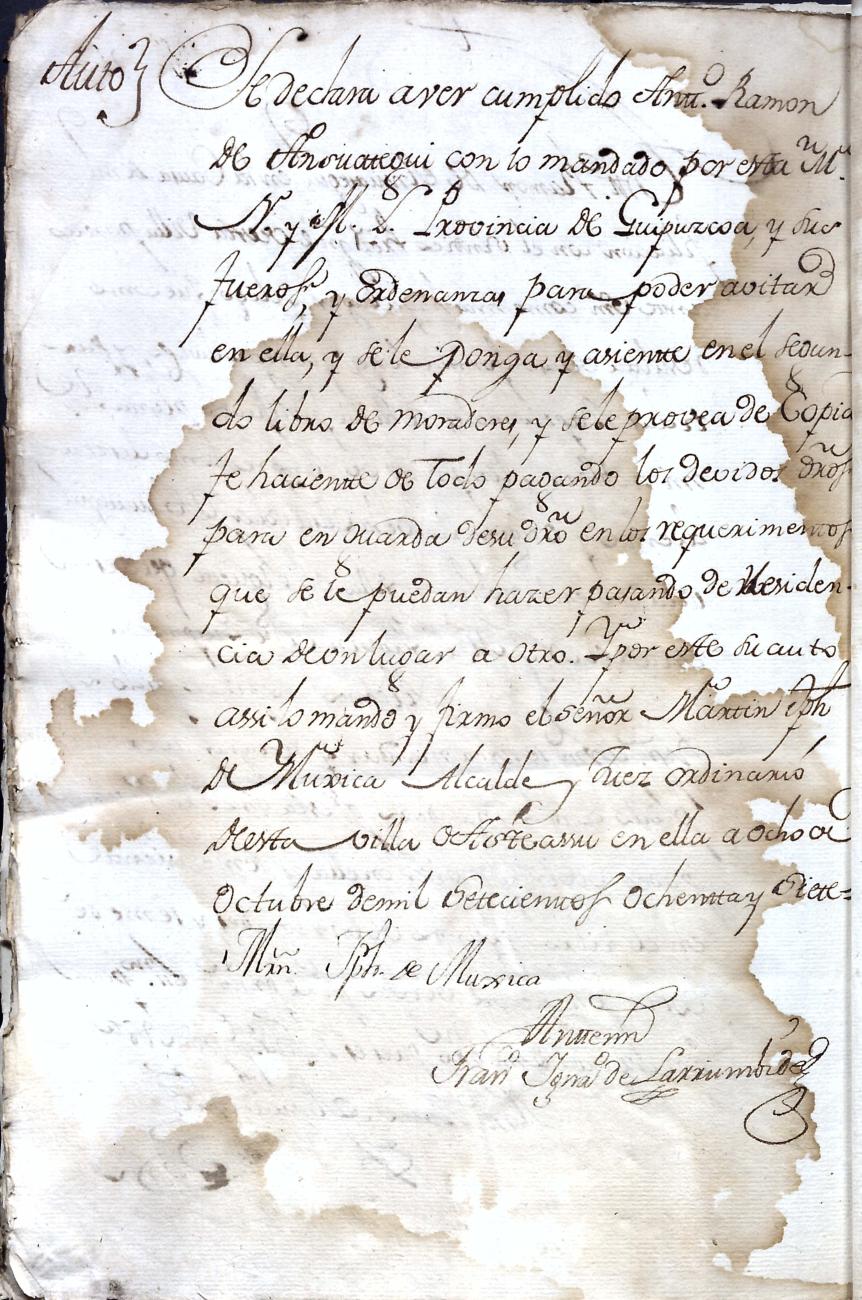 Auto
Se declara aver cumplido Antt.º Ramon
de Ansuategui con lo mandado por esta M.
N. y M. L. Provincia de Guipuzcoa, y sus
fueros, y ordenanzas para poder avitar
en ella, y sele ponga y asiente en el segun-
do libro de moradores, y sele provea de Copia
fe haciente de todo pagando los devidos dr̃os
para en guarda desu dr̃o en los requerimentos
que se le puedan hazer pasando de Residen-
cia de un lugar a otro. Y por este su auto
assi lo mandò y firmo el señor Martin Jph
de Muxica Alcalde y Juez ordinario
desta villa de Asteassu en ella a ocho de
Octubre demil setecientos ochentta y siete=
Mrñ. Jph. de Muxica
Anttemi
Franº Ignaº de Larrumbide